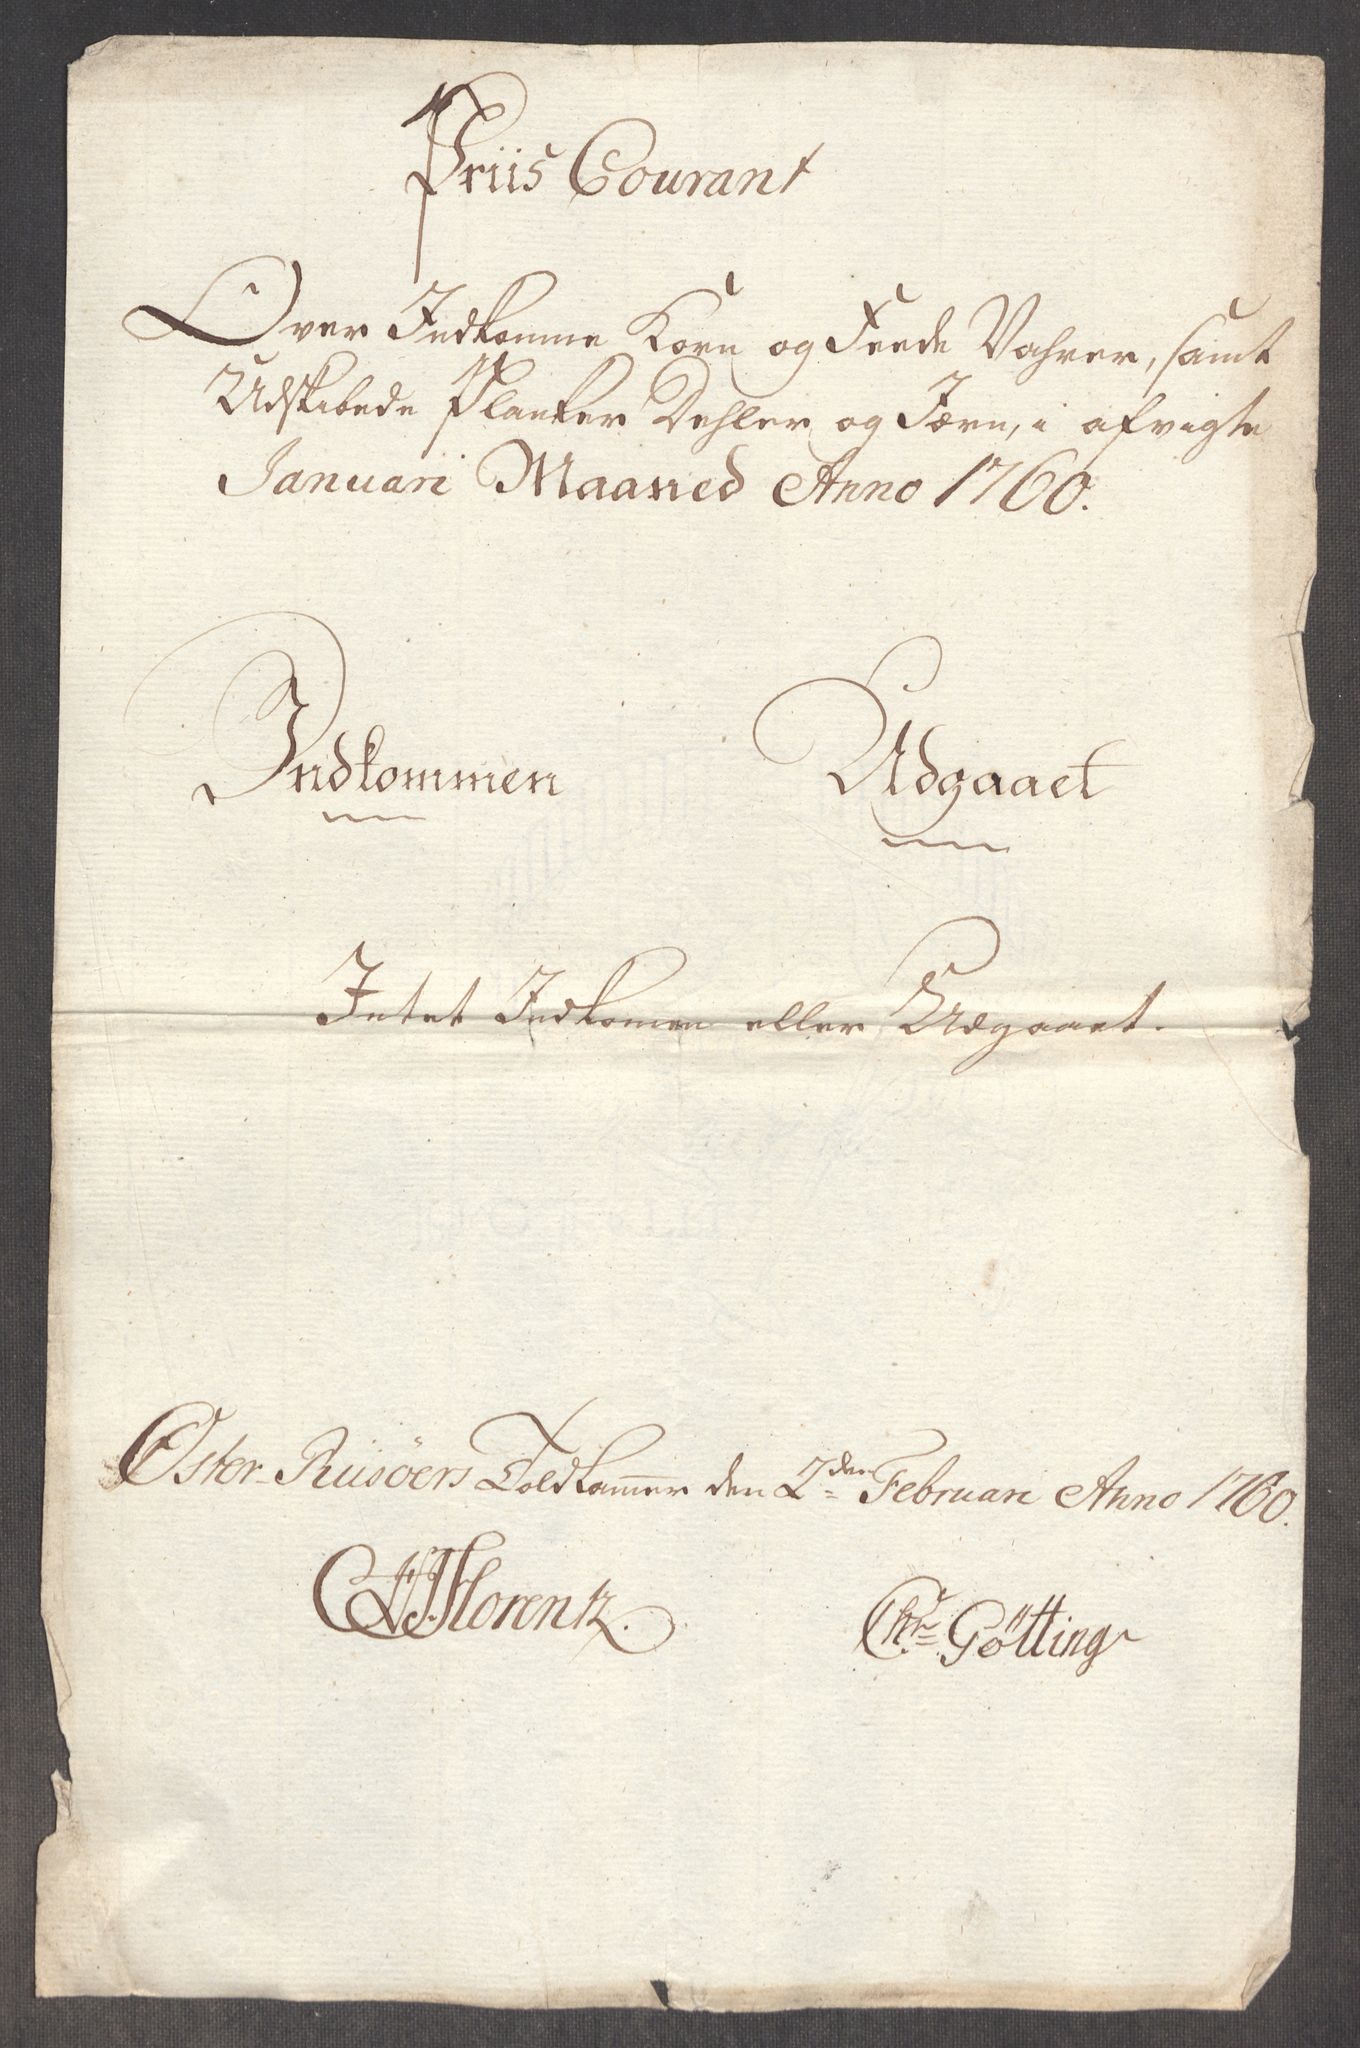 Priis Courant
Over Indkomne Korn og Feede Vahrer, samt
Udskibede Planker Dehler og Jærn, i afvigte
Januari Maaned Anno 1760.
Indkommen Udgaaet
Intet Indkomen eller Udgaaet.
Öster-Riisöers Toldkamer den 2den Februari Anno 1760.
Florentz. Chr= Götting